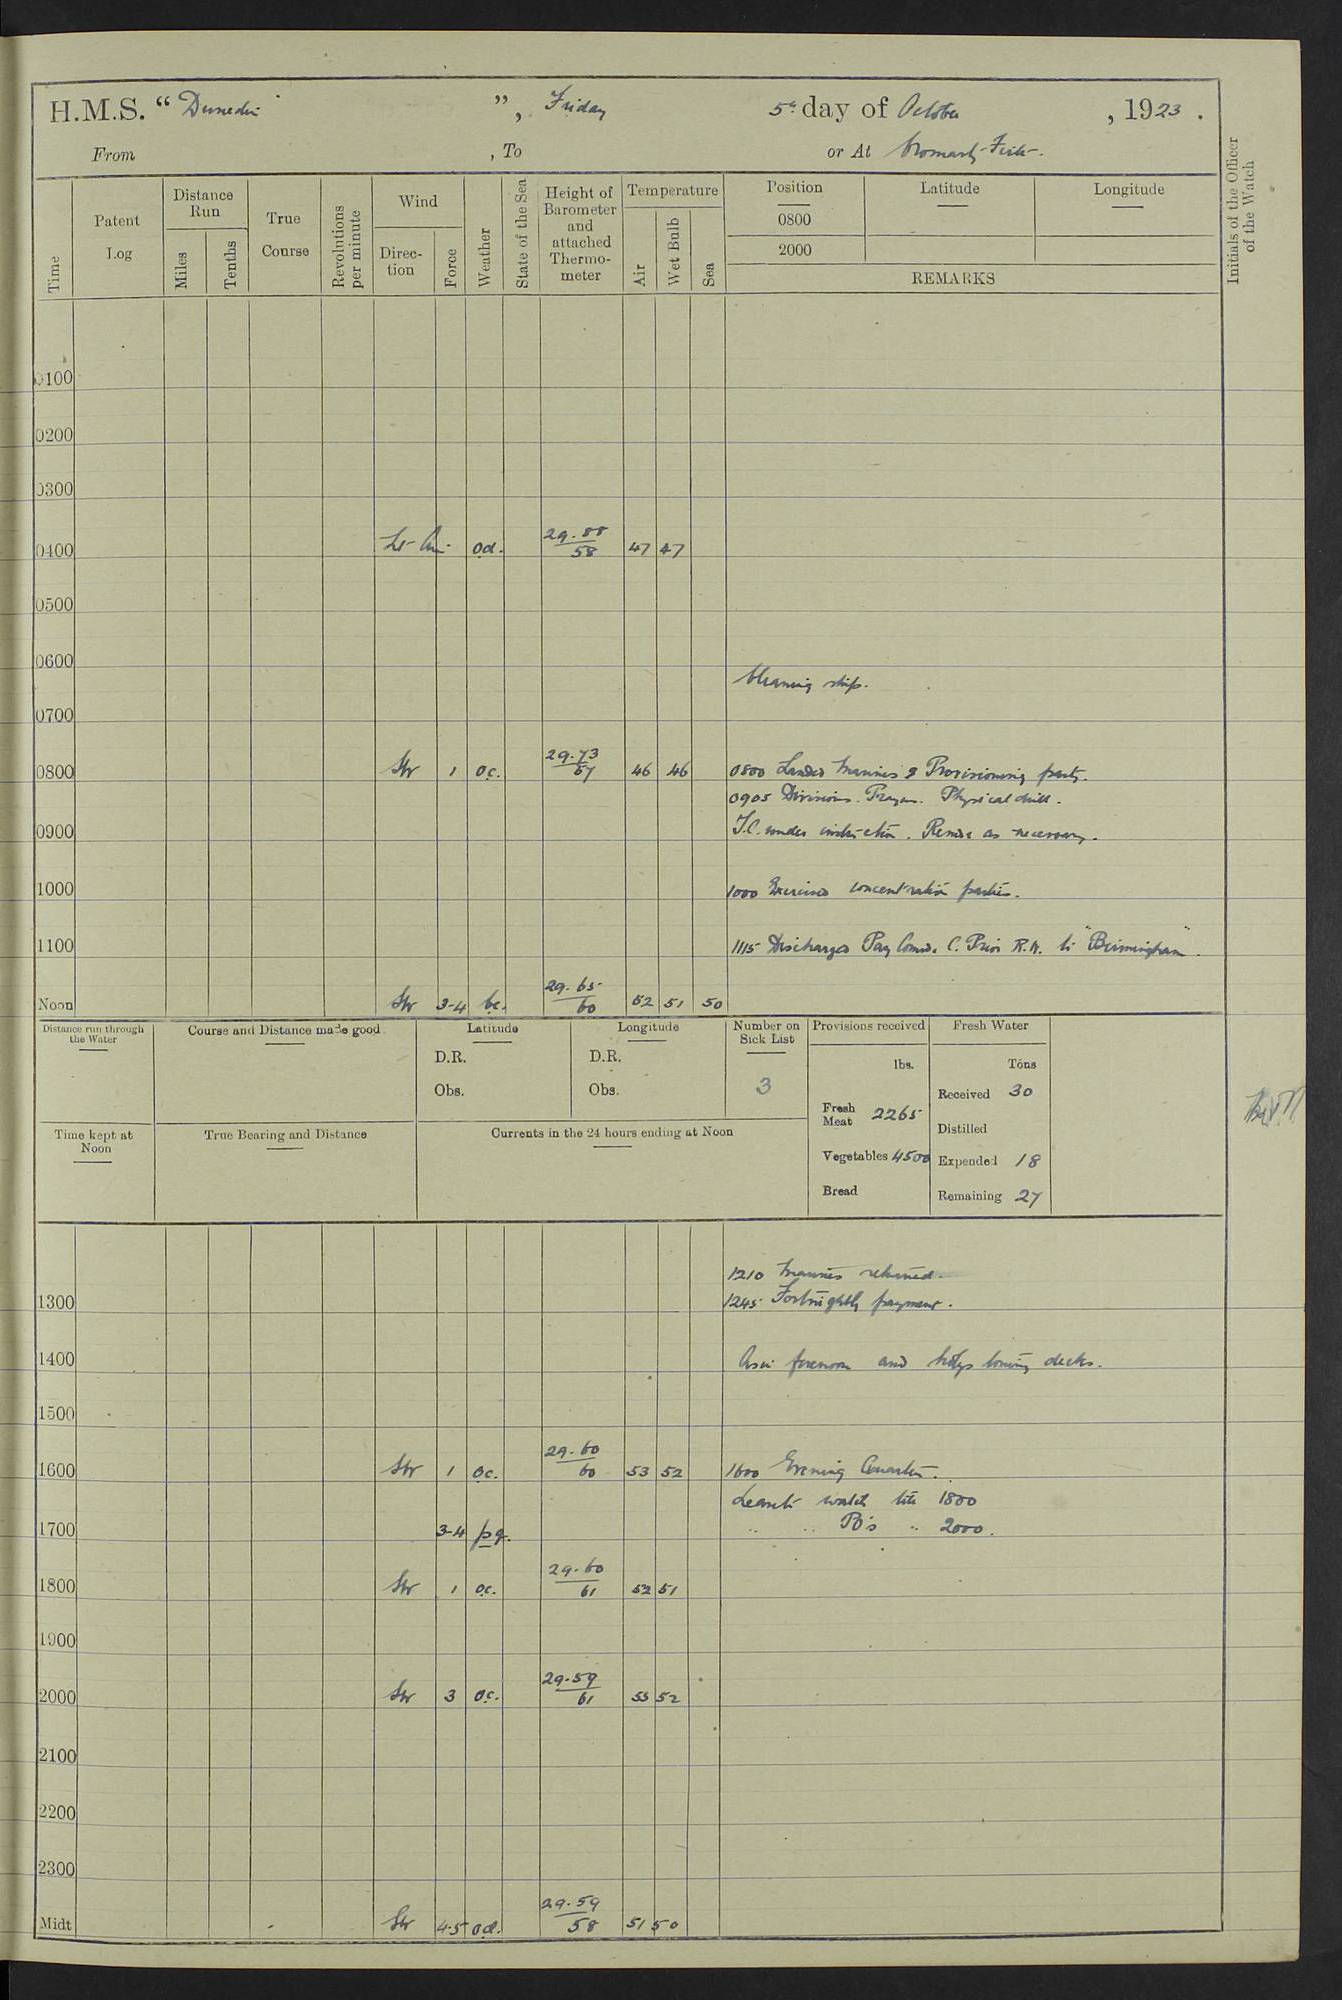 H.M.S. "Dunedin", Friday 5th day of October, 1923.
From , To or At Cromarty Firth.
Time
Patent Log
Distance Run
Miles
Tenths
True Course
Revolutions per minute
Wind
Direction
Force
Weather
State of the Sea
Height of Barometer and attached Thermometer
Temperature
Air
Wet Bulb
Sea
Position Latitude Longitude
0800
2000
REMARKS
Initials of the Officer of the Watch
0100
0200
0300
0400 Lt Air od. 29.88/58 47 47
0500
0600
Cleaning ship.
0700
0800 SW 1 oc. 29.73/57 46 46 0800 Landed Marines & Provisioning party.
0905 Divisions. Prayers. Physical drill.
0900 T.C. under instruction. Remdr as necessary.
1000 1000 Exercised concentration parties.
1100 1115 Discharged Pay Comdr C. Prior R.N. to "Birmingham".
Noon SW 3-4 bc. 29.65/60 52 51 50
Distance run through the Water
Course and Distance made good
Latitude
D.R.
Obs.
Longitude
D.R.
Obs.
Number on Sick List
3
Provisions received
lbs.
Fresh Meat 2265
Vegetables 4500
Bread
Fresh Water
Tons
Received 30
Distilled
Expended 18
Remaining 27
Time kept at Noon
True Bearing and Distance
Currents in the 24 hours ending at Noon
1210 Marines returned.
1300 1245 Fortnightly payment.
1400 As in forenoon and
decks.
1500
1600 SW 1 oc. 29.60/60 53 52 1600 Evening Quarters.
Leave to watch till 1800
1700 3-4 pq. " " POs " 2000.
1800 SW 1 oc. 29.60/61 52 51
1900
2000 SW 3 oc. 29.59/61 53 52
2100
2200
2300
Midt SW 4-5 od. 29.59/58 51 50